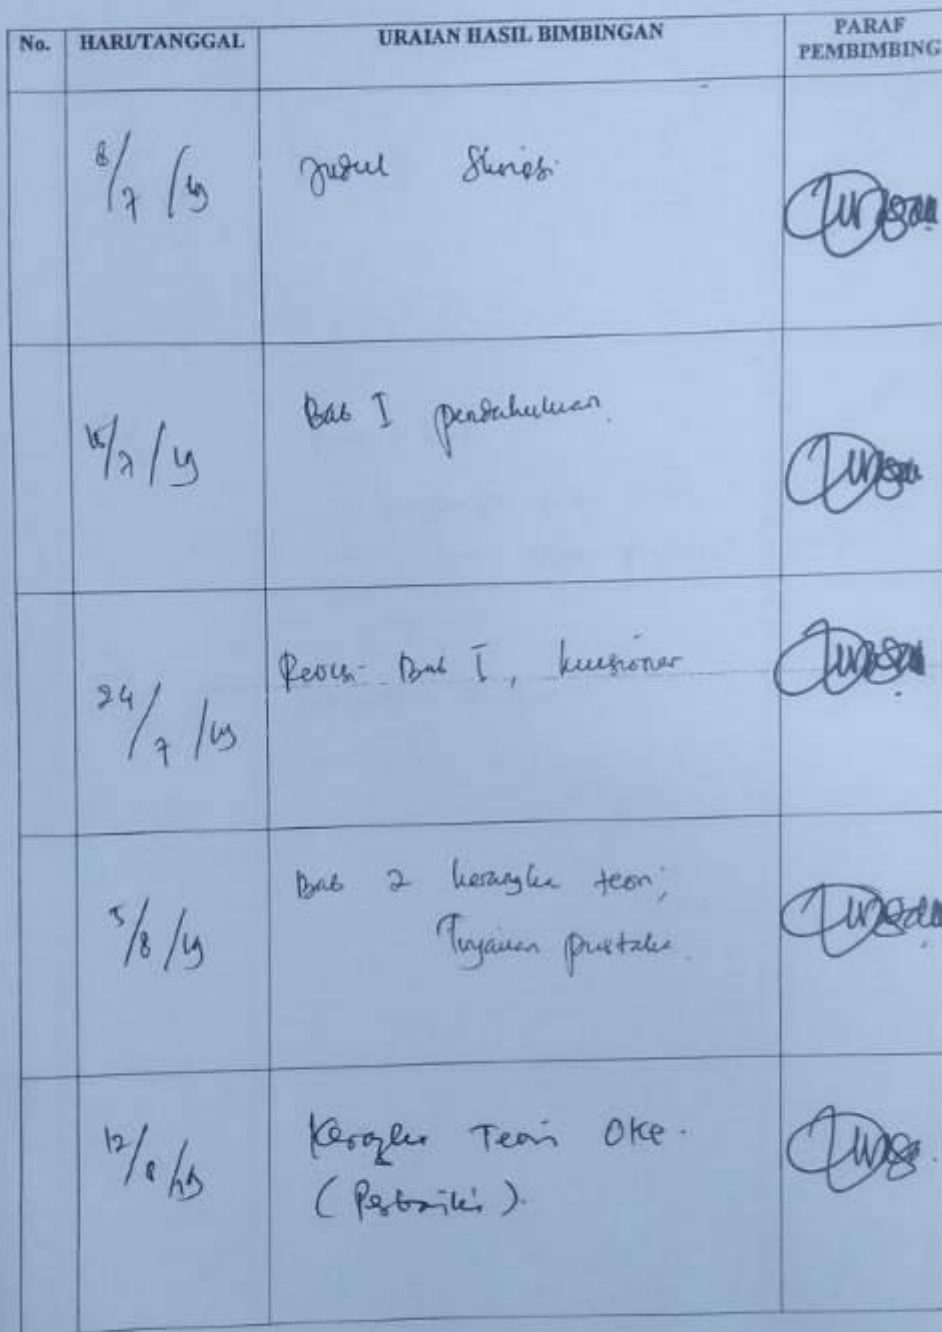 No. HARI/TANGGAL URAIAN HASIL BIMBINGAN PARAF
PEMBIMBING
8/7/19 Judul Skripsi
Bab I pendahuluan
24/7/19 Revisi Bab I, kuesioner
5/8/19 Bab 2 kerangka teori,
Tinjauan pustaka
12/8/19 Kerangka Teori Oke.
(Perbaiki).